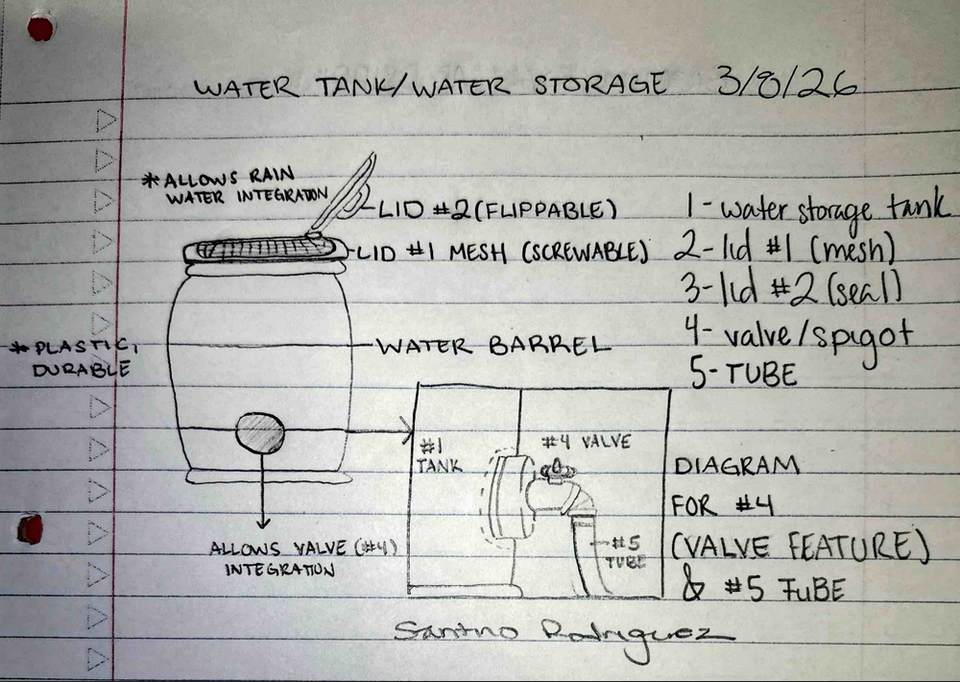 WATER TANK/WATER STORAGE 3/8/26
*ALLOWS RAIN
WATER INTEGRATION
LID #2 (FLIPPABLE)
LID #1 MESH (SCREWABLE)
*PLASTIC,
DURABLE
WATER BARREL
1 - water storage tank
2 - lid #1 (mesh)
3 - lid #2 (seal)
4 - valve/spigot
5 - TUBE
#1
TANK
#4 VALVE
#5
TUBE
ALLOWS VALVE (#4)
INTEGRATION
DIAGRAM
FOR #4
(VALVE FEATURE)
& #5 TUBE
Santino Rodriguez